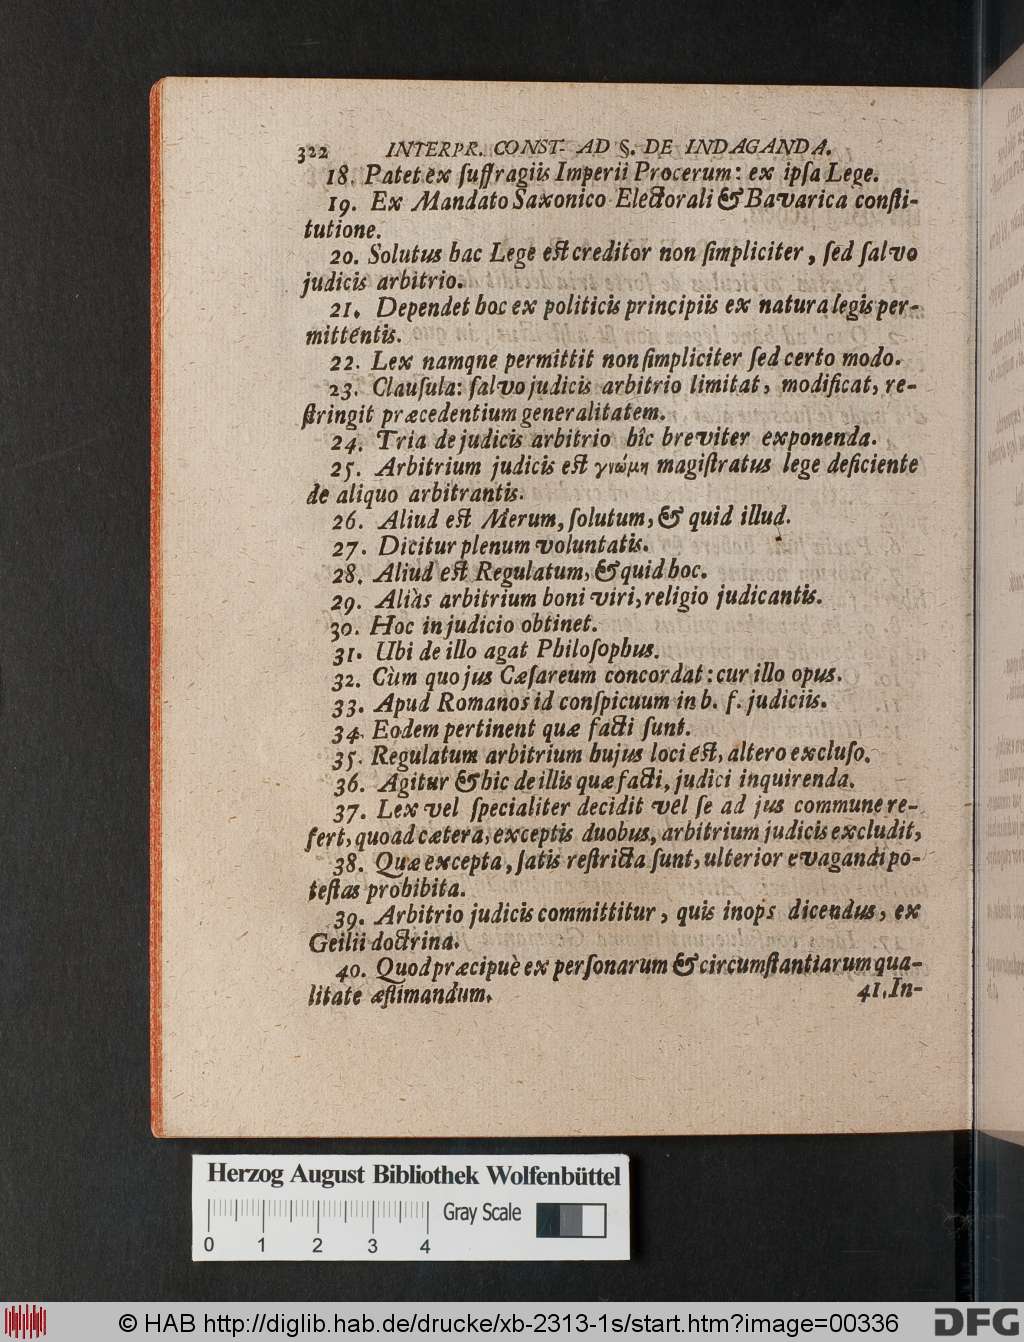 322 INTERPR. CONST. AD §. DE INDAGANDA.
18. Patet ex ſuffragiis Imperii Procerum: ex ipſa Lege.
19. Ex Mandato Saxonico Electorali & Bavarica conſti-
tutione.
20. Solutus hac Lege eſt creditor non ſimpliciter, ſed ſalvo
judicis arbitrio.
21. Dependet hoc ex politicis principiis ex natura legis per-
mittentis.
22. Lex namqne permittit non ſimpliciter ſed certo modo.
23. Clauſula: ſalvo judicis arbitrio limitat, modificat, re-
ſtringit præcedentium generalitatem.
24. Tria de judicis arbitrio hîc breviter exponenda.
25. Arbitrium judicis eſt γνώμη magiſtratus lege deficiente
de aliquo arbitrantis.
26. Aliud eſt Merum, ſolutum, & quid illud.
27. Dicitur plenum voluntatis.
28. Aliud eſt Regulatum, & quid hoc.
29. Aliàs arbitrium boni viri, religio judicantis.
30. Hoc in judicio obtinet.
31. Ubi de illo agat Philoſophus.
32. Cùm quo jus Cæſareum concordat: cur illo opus.
33. Apud Romanos id conſpicuum in b. f. judiciis.
34. Eodem pertinent quæ facti ſunt.
35. Regulatum arbitrium hujus loci eſt, altero excluſo.
36. Agitur & hic de illis quæ facti, judici inquirenda.
37. Lex vel ſpecialiter decidit vel ſe ad jus commune re-
fert, quoad cætera, exceptis duobus, arbitrium judicis excludit,
38. Quæ excepta, ſatis reſtricta ſunt, ulterior evagandi po-
teſtas prohibita.
39. Arbitrio judicis committitur, quis inops dicendus, ex
Geilii doctrina.
40. Quod præcipuè ex perſonarum & circumſtantiarum qua-
litate æſtimandum.
41. In-
Herzog August Bibliothek Wolfenbüttel
Gray Scale
0 1 2 3 4
© HAB http://diglib.hab.de/drucke/xb-2313-1s/start.htm?image=00336
DFG